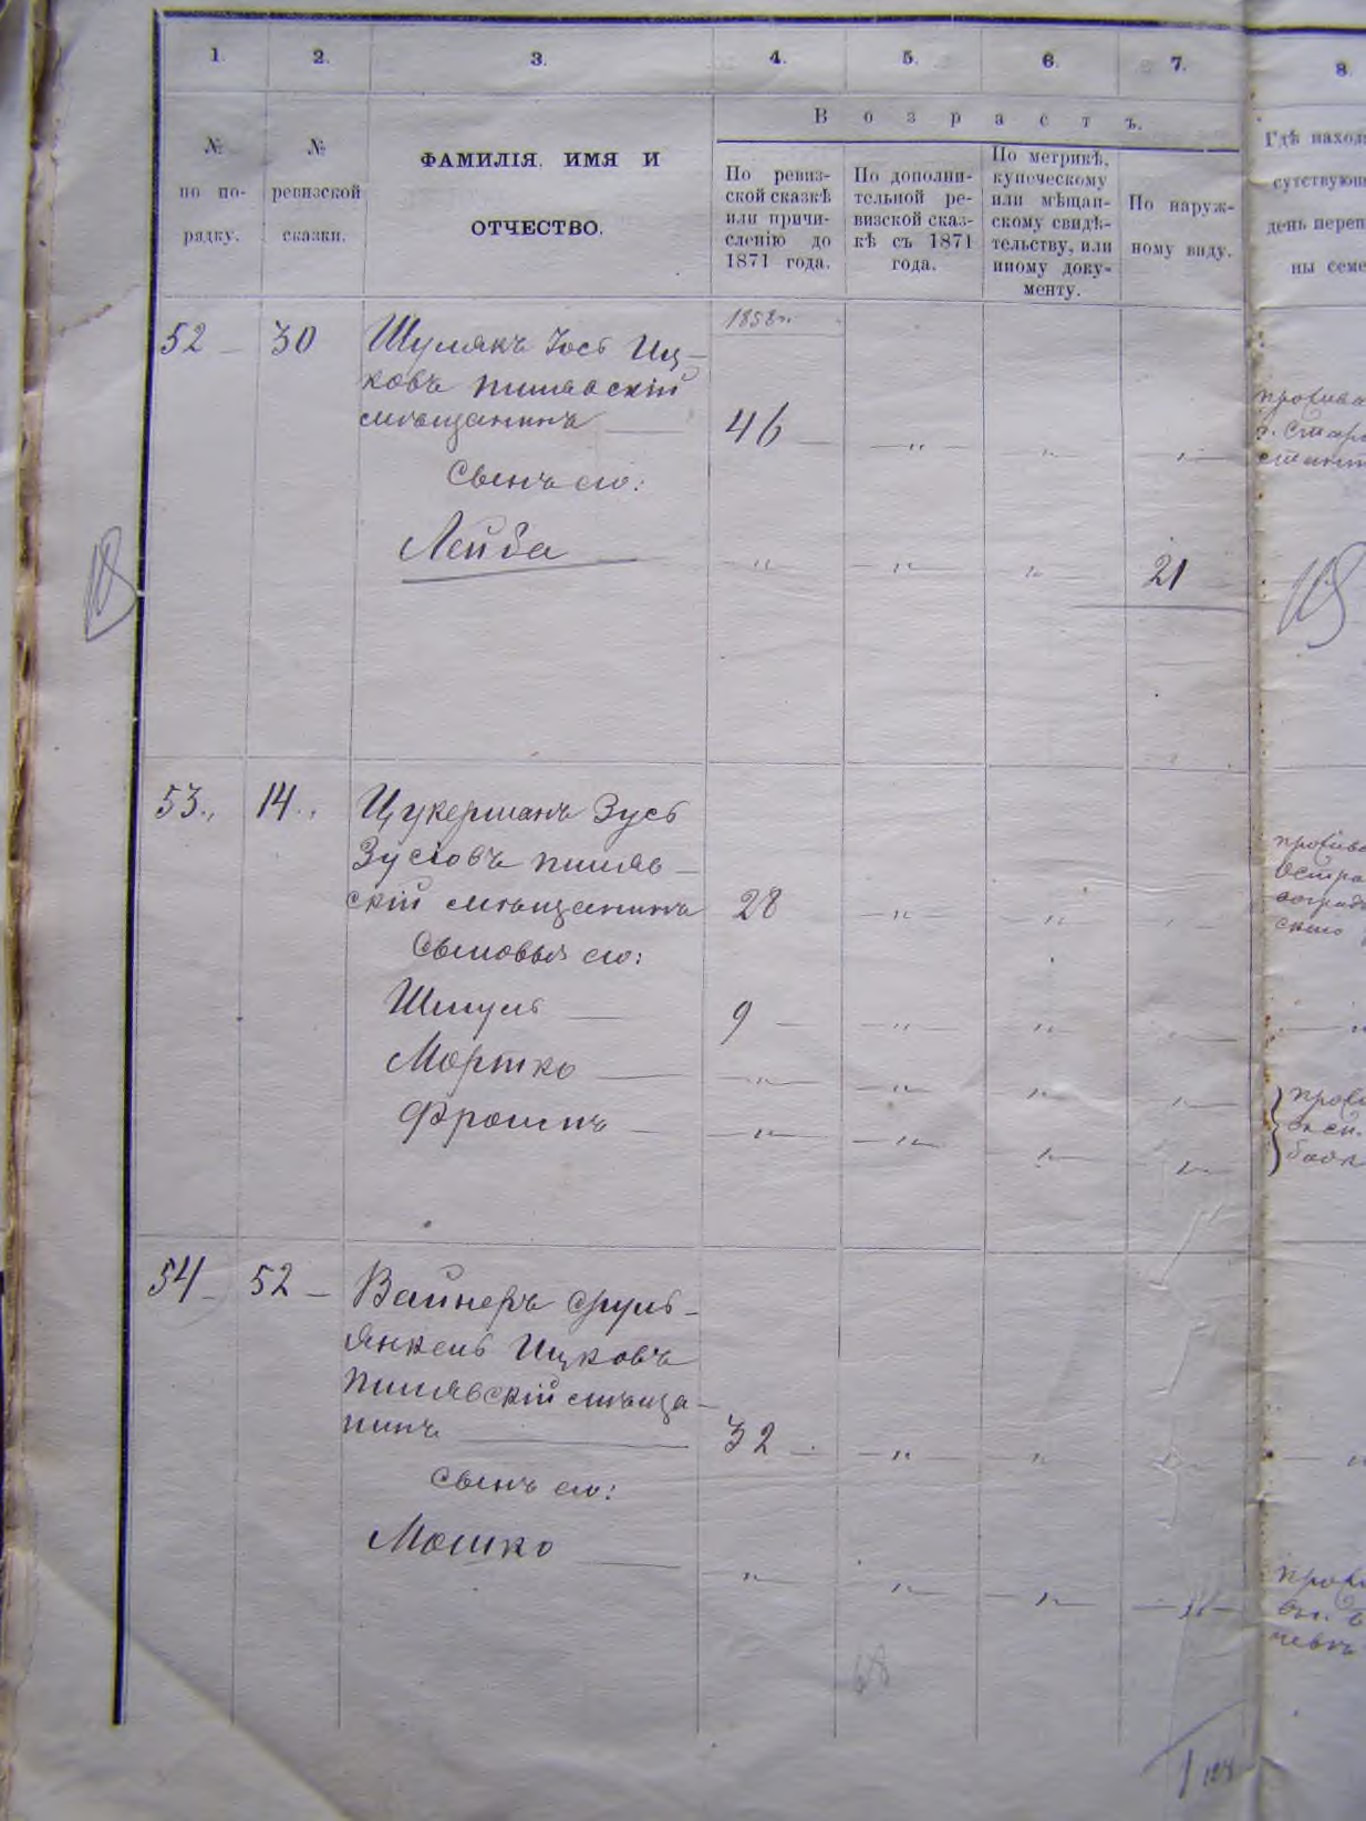 1. 2. 3. 4. 5. 6. 7. 8.
В о з р а с т ъ.
№
по по-
рядку.
№
ревизской
сказки.
ФАМИЛІЯ. ИМЯ И
ОТЧЕСТВО.
По ревиз-
ской сказкѣ
или причи-
сленію до
1871 года.
По дополни-
тельной ре-
визской сказ-
кѣ съ 1871
года.
По метрикѣ,
купеческому
или мѣщан-
скому свидѣ-
тельству, или
иному доку-
менту.
По наруж-
ному виду.
Гдѣ наход
сутствующ
день переп
ны семе
1858 г.
52 30 Шулякъ Іось Иц-
ковъ пилявскій
мѣщанинъ 46
Сынъ его:
Лейба 21
53., 14., Цукерманъ Зусь
Зусіовъ пиляв-
скій мѣщанинъ 28
Сыновья его:
Шмуль 9
Мортко
Фроимъ
54 52 Вайнеръ Сруль-
Янкель Ицковъ
Пилявскій мѣща-
нинъ 32
Сынъ его:
Мошко
68